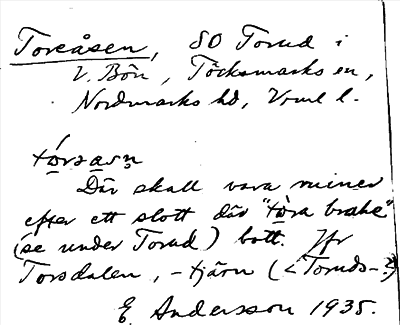 Toreåsen, SO Torud i
V. Bön, Töcksmarks sn,
Nordmarks hd, Vrml l.
tó̱rsa̱sn̥
Där skall vara ruiner
efter ett slott där "tò̱ra brake"
(se under Torud) bott. Jfr
Torsdalen, -tjärn (< Toruds-?)
E. Andersson 1935.